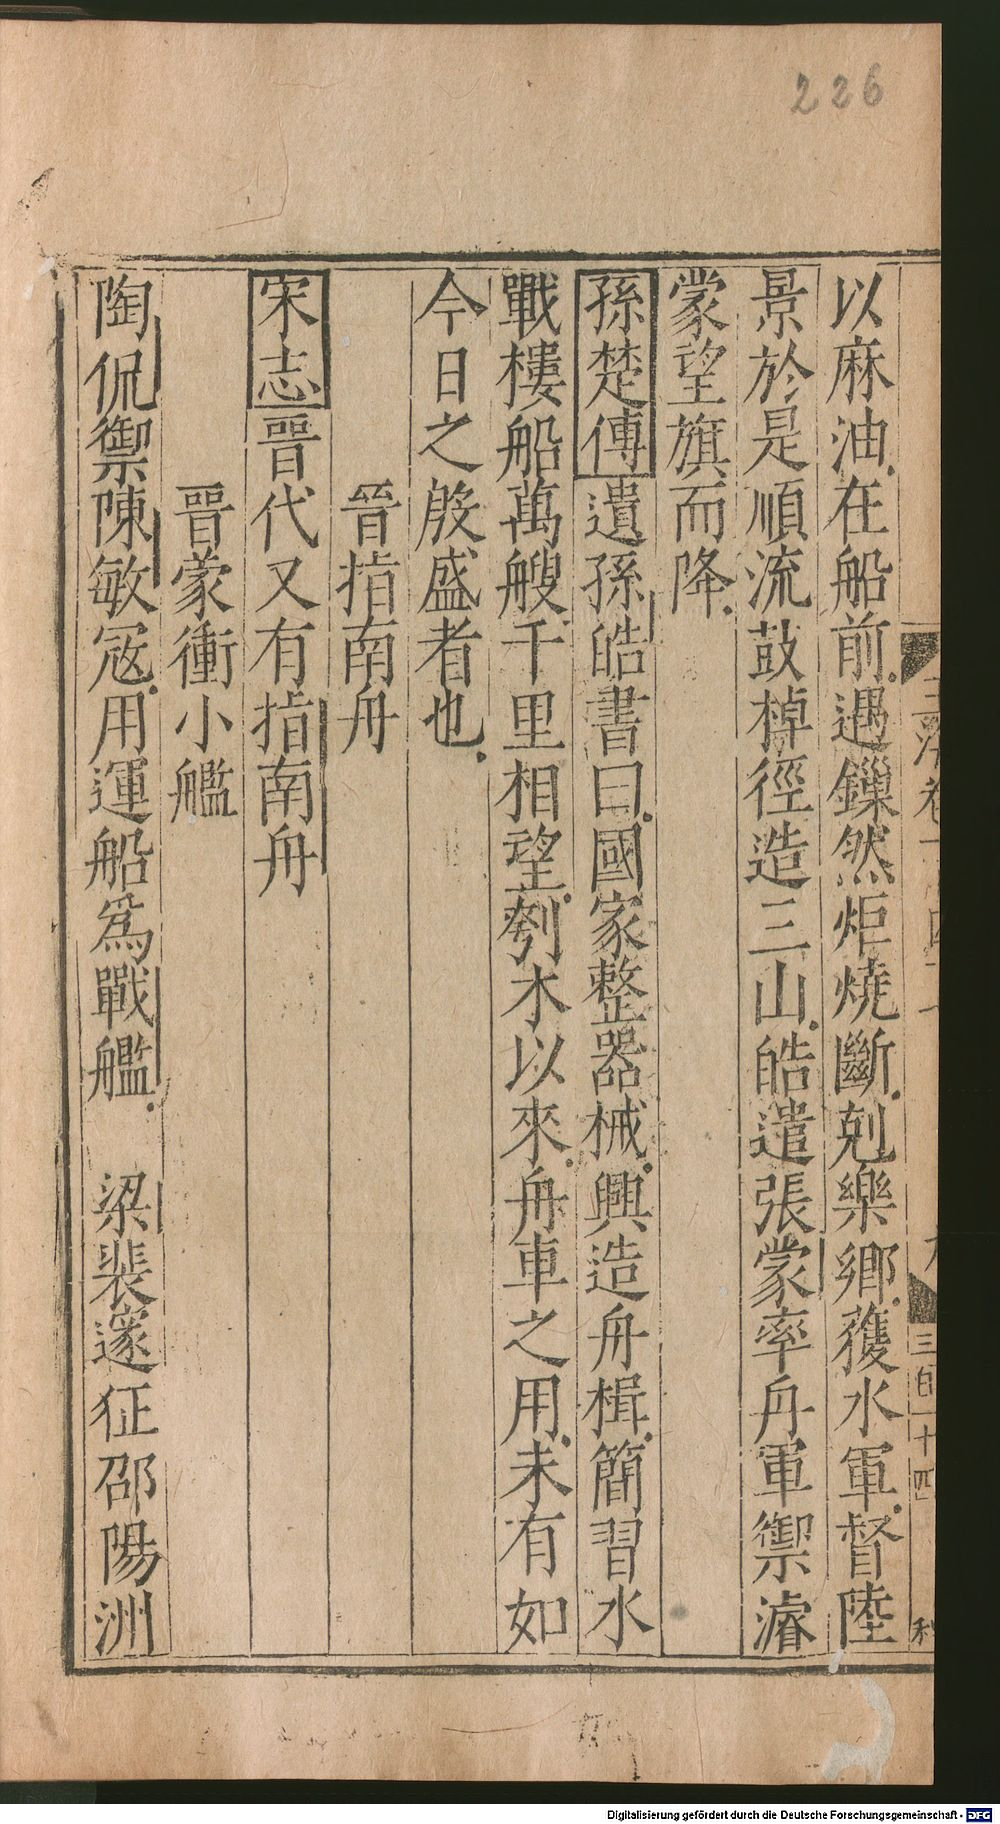 226
以麻油在船前遇鏁然炬燒斷剋樂鄉獲水軍督陸
景於是順流鼓棹徑造三山皓遣張蒙率舟軍禦濬
蒙望旗而降
孫楚傳遺孫皓書曰國家整器械興造舟楫簡習水
戰樓船萬艘千里相望刳木以來舟車之用未有如
今日之殷盛者也
晉指南舟
宋志晉代又有指南舟
晉蒙衝小艦
陶侃禦陳敏寇用運船爲戰艦 梁裴邃征邵陽洲
三百十四
Digitalisierung gefördert durch die Deutsche Forschungsgemeinschaft - DFG